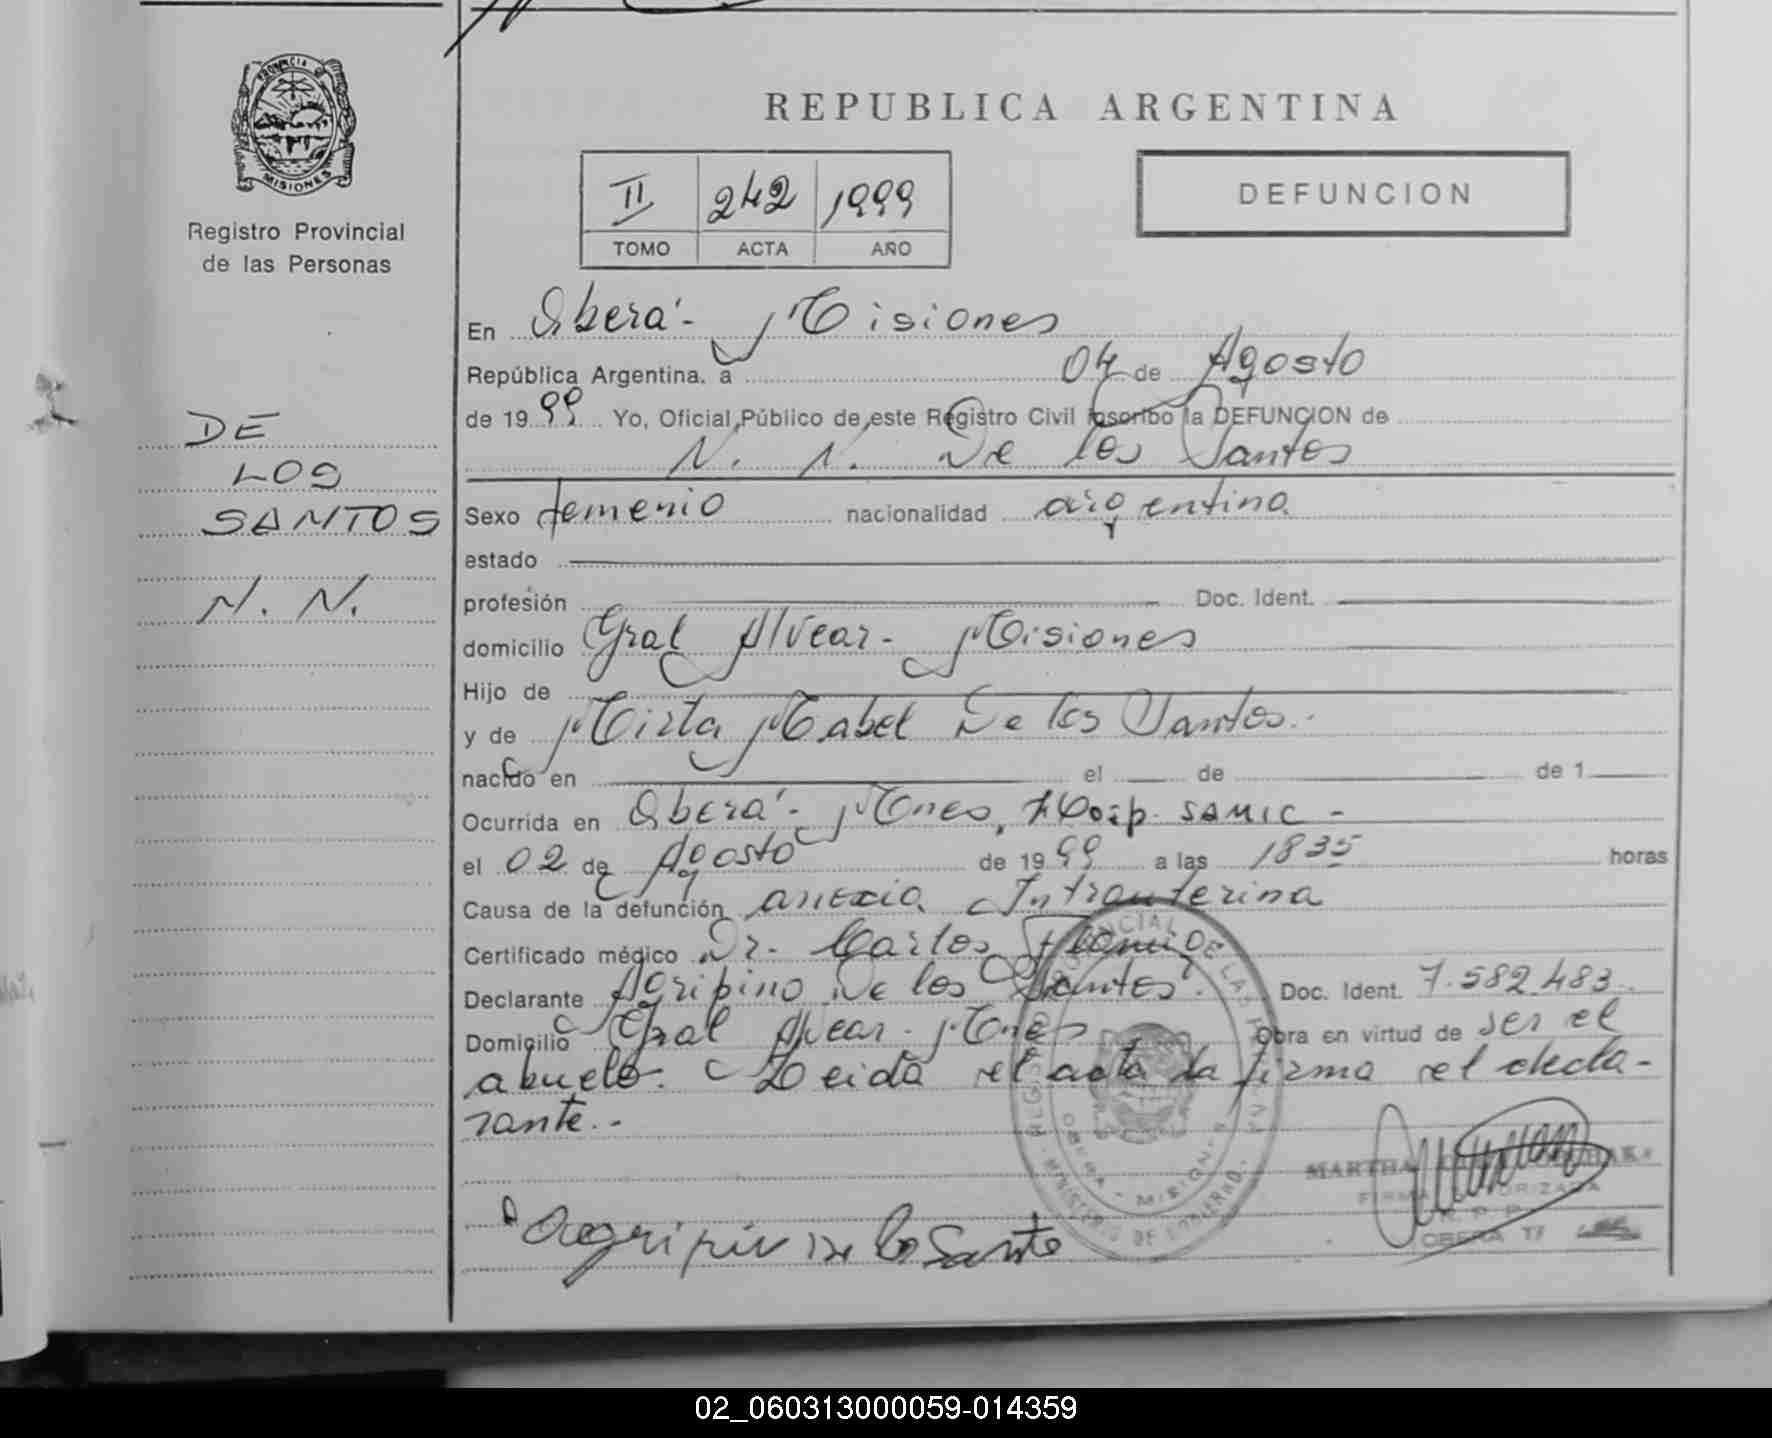 PROVINCIA DE
MISIONES
Registro Provincial
de las Personas
DE
LOS
SANTOS
N. N.
REPUBLICA ARGENTINA
II 242 1999
TOMO ACTA AÑO
DEFUNCION
En Oberá - Misiones
República Argentina, a 04 de Agosto
de 1999 Yo, Oficial Público de este Registro Civil inscribo la DEFUNCION de
N. N. De los Santos
Sexo femenio nacionalidad argentina
estado
profesión Doc. Ident.
domicilio Gral Alvear - Misiones
Hijo de
y de Mirta Mabel De los Santos.
nacido en el de de 1
Ocurrida en Oberá - Mnes, Hosp. SAMIC -
el 02 de Agosto de 1999 a las 1835 horas
Causa de la defunción anoxia Intrauterina
Certificado médico Dr. Carlos
Declarante Agripino De los Santos. Doc. Ident. 7.582.483
Domicilio Gral Alvear - Mnes Obra en virtud de ser el
abuelo. Leida el acta la firma el decla-
rante.-
REGISTRO PROVINCIAL DE LAS PERSONAS
OBERA - MISIONES
MINISTERIO DE GOBIERNO
MARTHA
FIRMA AUTORIZADA
R. P. P.
OBERA
Agripin De lo Santo
02_060313000059-014359